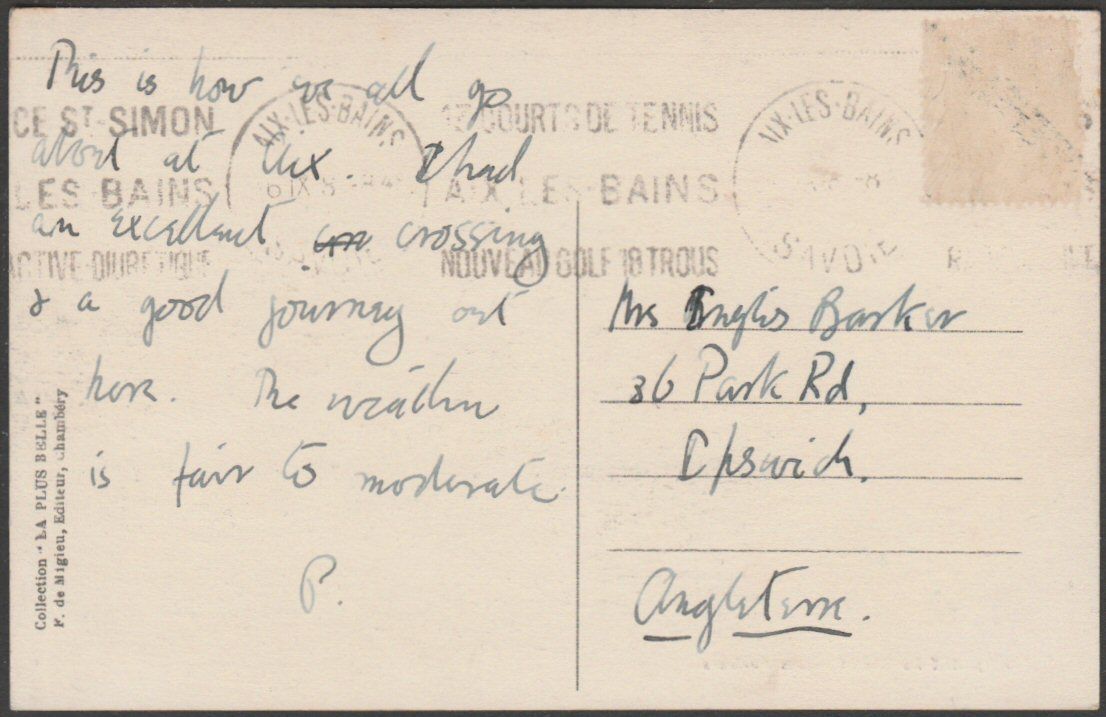 This is how we all go
about at Aix. I had
an excellent crossing
& a good journey out
here. The weather
is fair to moderate.
P.
Mrs Inglis Barker
36 Park Rd,
Ipswich.
Angleterre.
CE ST-SIMON
LES BAINS
ACTIVE-DIURETIQUE
AIX-LES-BAINS
SAVOIE
COURTS DE TENNIS
AIX LES BAINS
NOUVEAU GOLF 18 TROUS
AIX-LES-BAINS
SAVOIE
Collection "LA PLUS BELLE"
F. de Migieu, Editeur, Chambéry